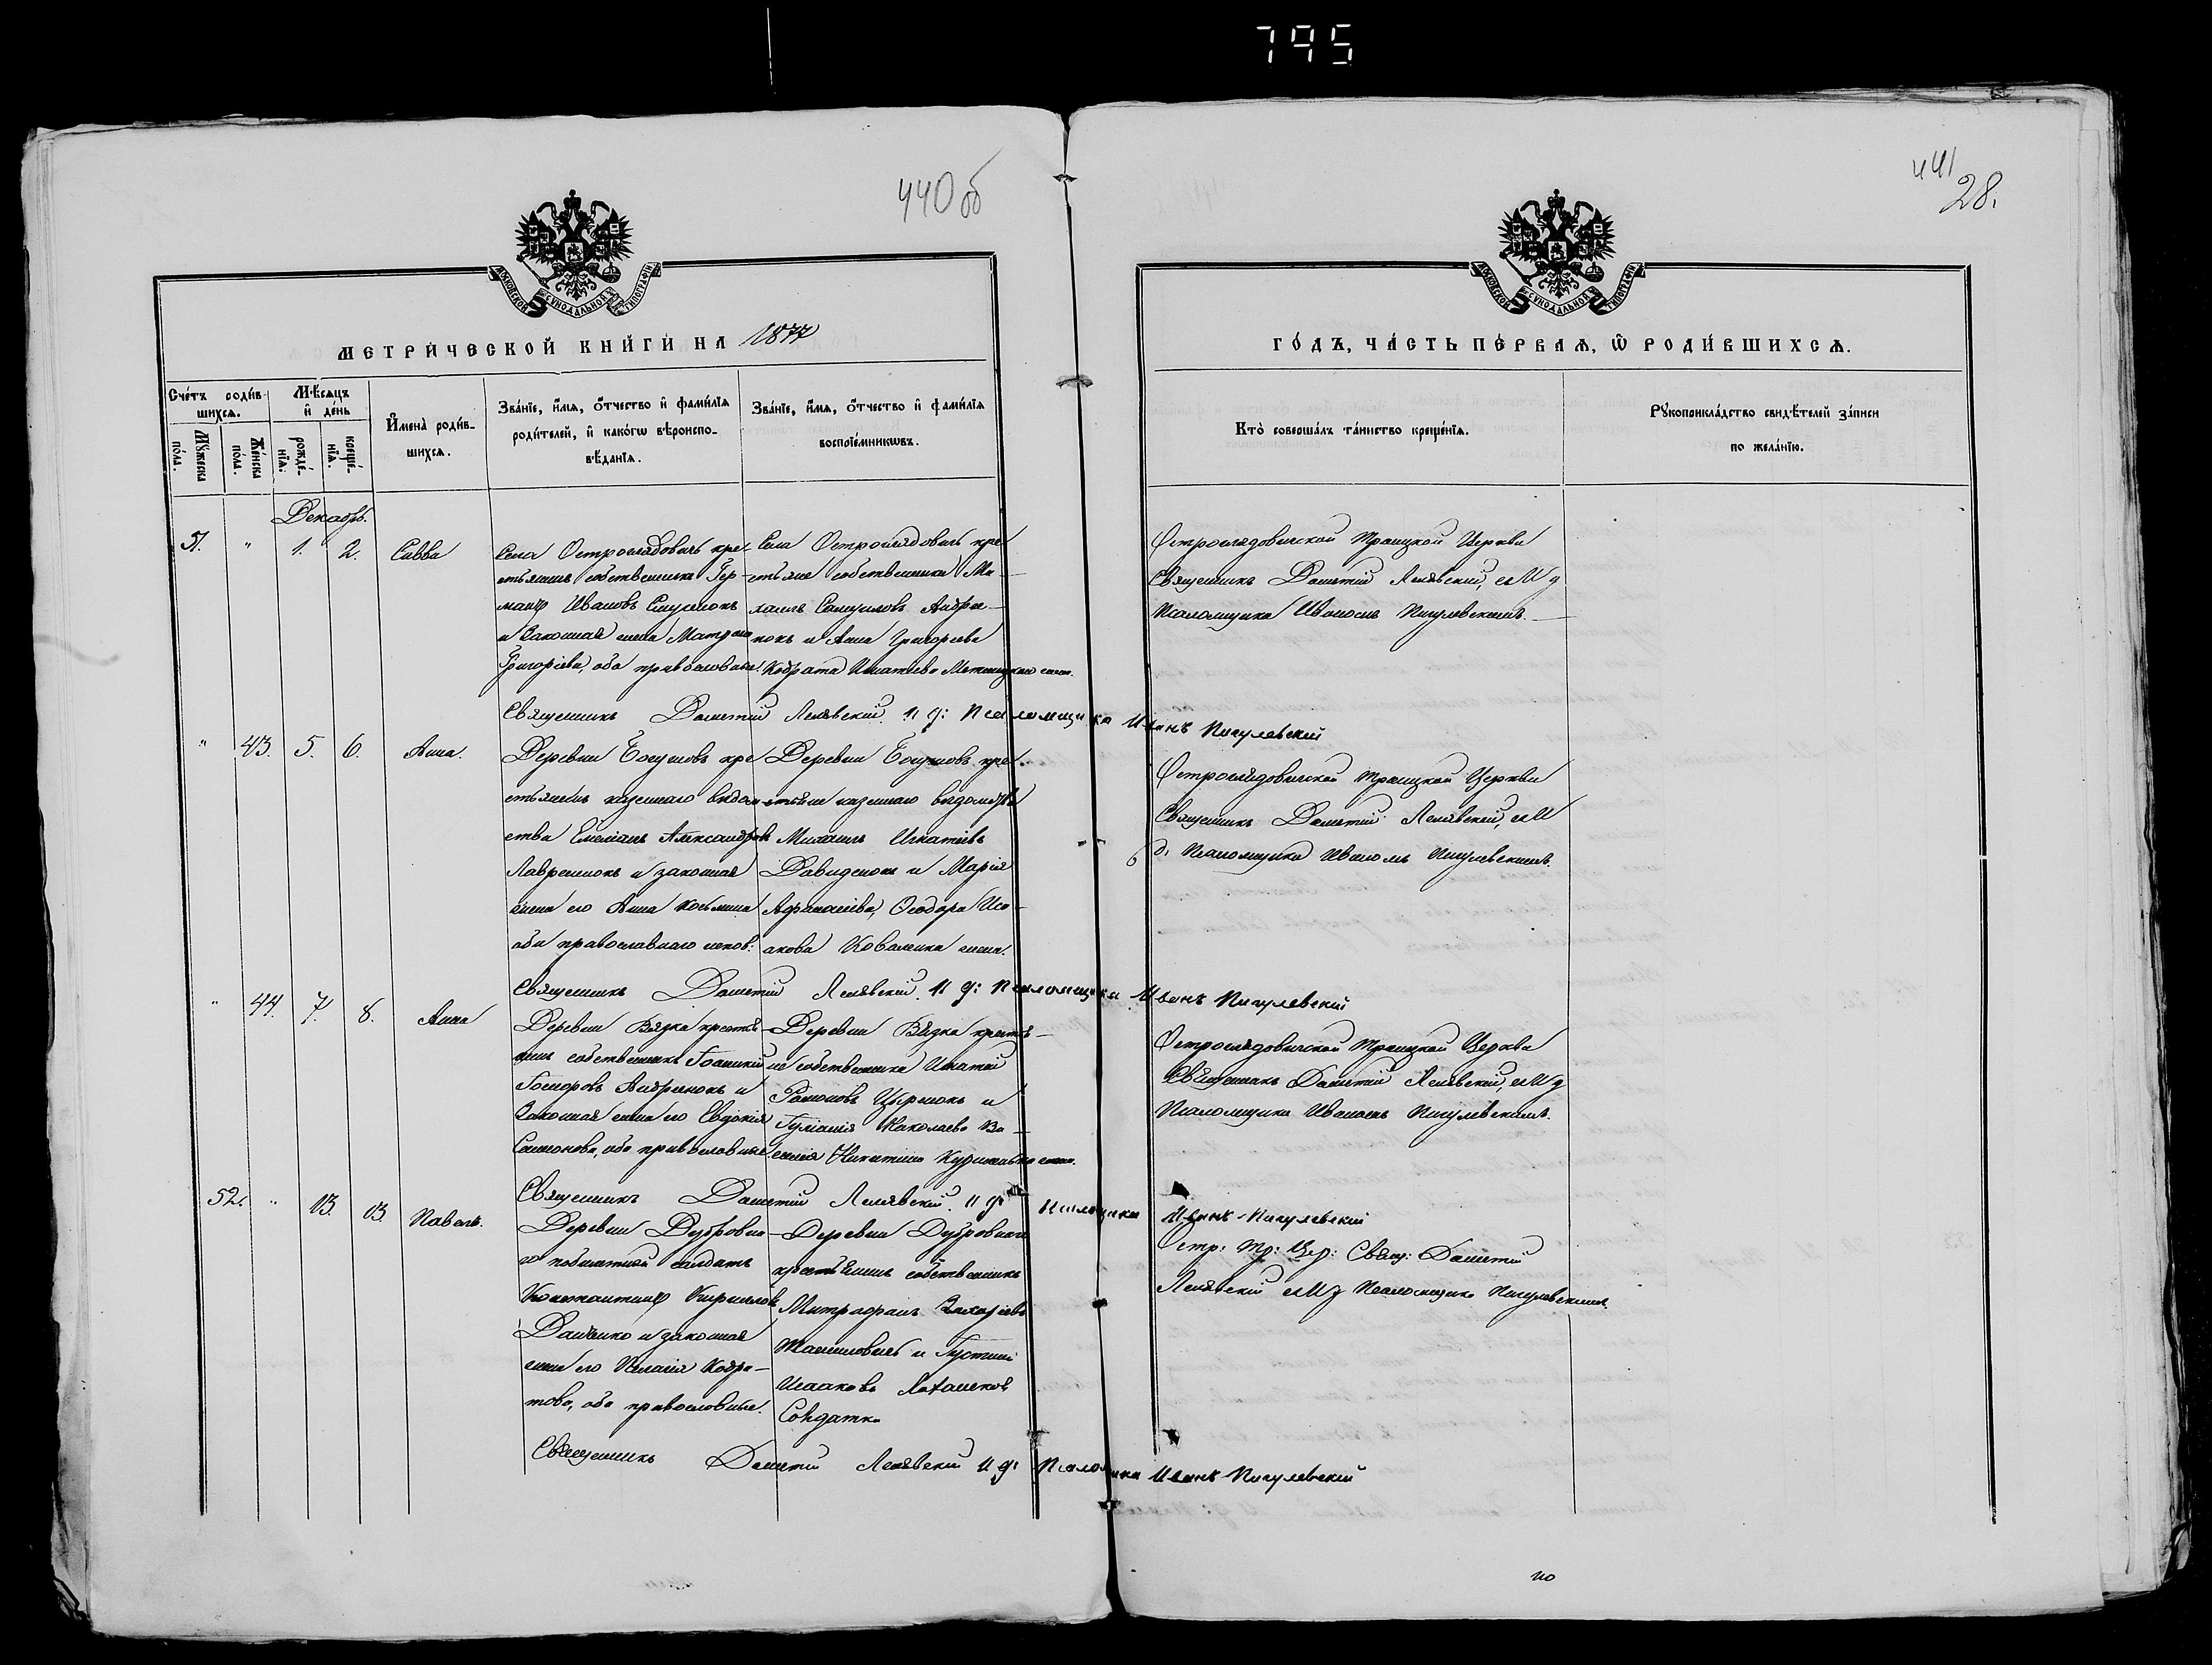 795
440 об
441
28.
МОСКОВСКОЙ СУНОДАЛЬНОЙ ТИПОГРАФІИ
МОСКОВСКОЙ СУНОДАЛЬНОЙ ТИПОГРАФІИ
МЕТРИ́ЧЕСКОЙ КНИ́ГИ НА 1877
ГО́ДЪ, ЧА́СТЬ ПЕ́РВАѦ, Ѿ РОДИ́ВШИХСѦ.
Сче́тъ роди́в-
шихсѧ.
Мꙋ́жеска
по́ла.
Же́нска
по́ла.
Мѣ́сѧцъ
и҆ де́нь
рожде́-
нїѧ:
креще́-
нїѧ.
И҆мена̀ роди́в-
шихсѧ.
Зва́нїе, и҆́мѧ, ѻ҆́тчество и҆ фами́лїѧ
роди́телей, и҆ како́гѡ вѣроиспо-
вѣ́данїѧ.
Зва́нїе, и҆́мѧ, ѻ҆́тчество и҆ фами́лїѧ
воспрїе́мникѡвъ.
Кто̀ соверша́лъ та́инство креще́нїѧ.
Рꙋкоприкла́дство свидѣ́телей за́писи
по жела́нїю.
Декабрь.
51. " 1. 2. Савва
Села Остроглядовичъ кре-
стьянинъ собственникъ Гер-
манъ Ивановъ
и законная жена Матрона
Григоріева, оба православные.
Села Остроглядовичъ кре-
стьяне собственники Ми-
хаилъ Самуиловъ Андре-
нокъ и Анна Григорьева
Кодрата Игнатьева жена.
Остроглядовичской Троицкой Церкви
Священникъ Дометій Ленявскій, съ И д
Псаломщика Иваномъ Пигулевскимъ.
Священникъ Дометій Ленявскій. И д: Псаломщика Иванъ Пигулевскій
" 43. 5. 6. Анна.
Деревни Богушовъ кре
стьянинъ казеннаго ведом-
ства Емеліанъ Александровъ
Лавреннокъ и законная
жена его Анна Косьмина
оба православнаго испов:
Деревни Богушовъ кре-
стьяне казеннаго ведомства
Михаилъ Игнатіевъ
Давиденокъ и Марія
Афанасіева, Ѳеодора Иса-
акова Коваленка жена.
Остроглядовичской Троицкой Церкви
Священникъ Дометій Ленявскій, съ И
д: Псаломщика Иваномъ Пигулевскимъ.
Священникъ Дометій Ленявскій. И д: Псаломщика Иванъ Пигулевскій
" 44. 7. 8. Анна
Деревни Вязка крестья-
нинъ собственникъ Іоанникій
Андренокъ и
Законная жена его Евдокія
Самсонова, оба православные
Деревни Вязка крестья-
не собственники Игнатій
и
Іуліанія Николаева Ва-
силія Никитина жена.
Остроглядовичской Троицкой Церкви
Священникъ Дометій Ленявскій, съ И д
Псаломщика Иваномъ Пигулевскимъ.
Священникъ Дометій Ленявскій. И д: Псаломщика Иванъ Пигулевскій
52. " 13. 13. Павелъ.
Деревни Дубровки-
солдатъ
Константинъ Кирилловъ
Даненко и законная
жена его Пелагія Кодра-
това, оба православные.
Деревни Дубровки
крестьянинъ собственникъ
Митрофанъ Захаріевъ
и Густина
Исаакова
Солдатка
Остр: Тр: Цер: Свящ: Дометій
Ленявскій съ И д Псаломщика Пигулевскимъ.
Священникъ Дометій Ленявскій И д: Псаломщика Иванъ Пигулевскій